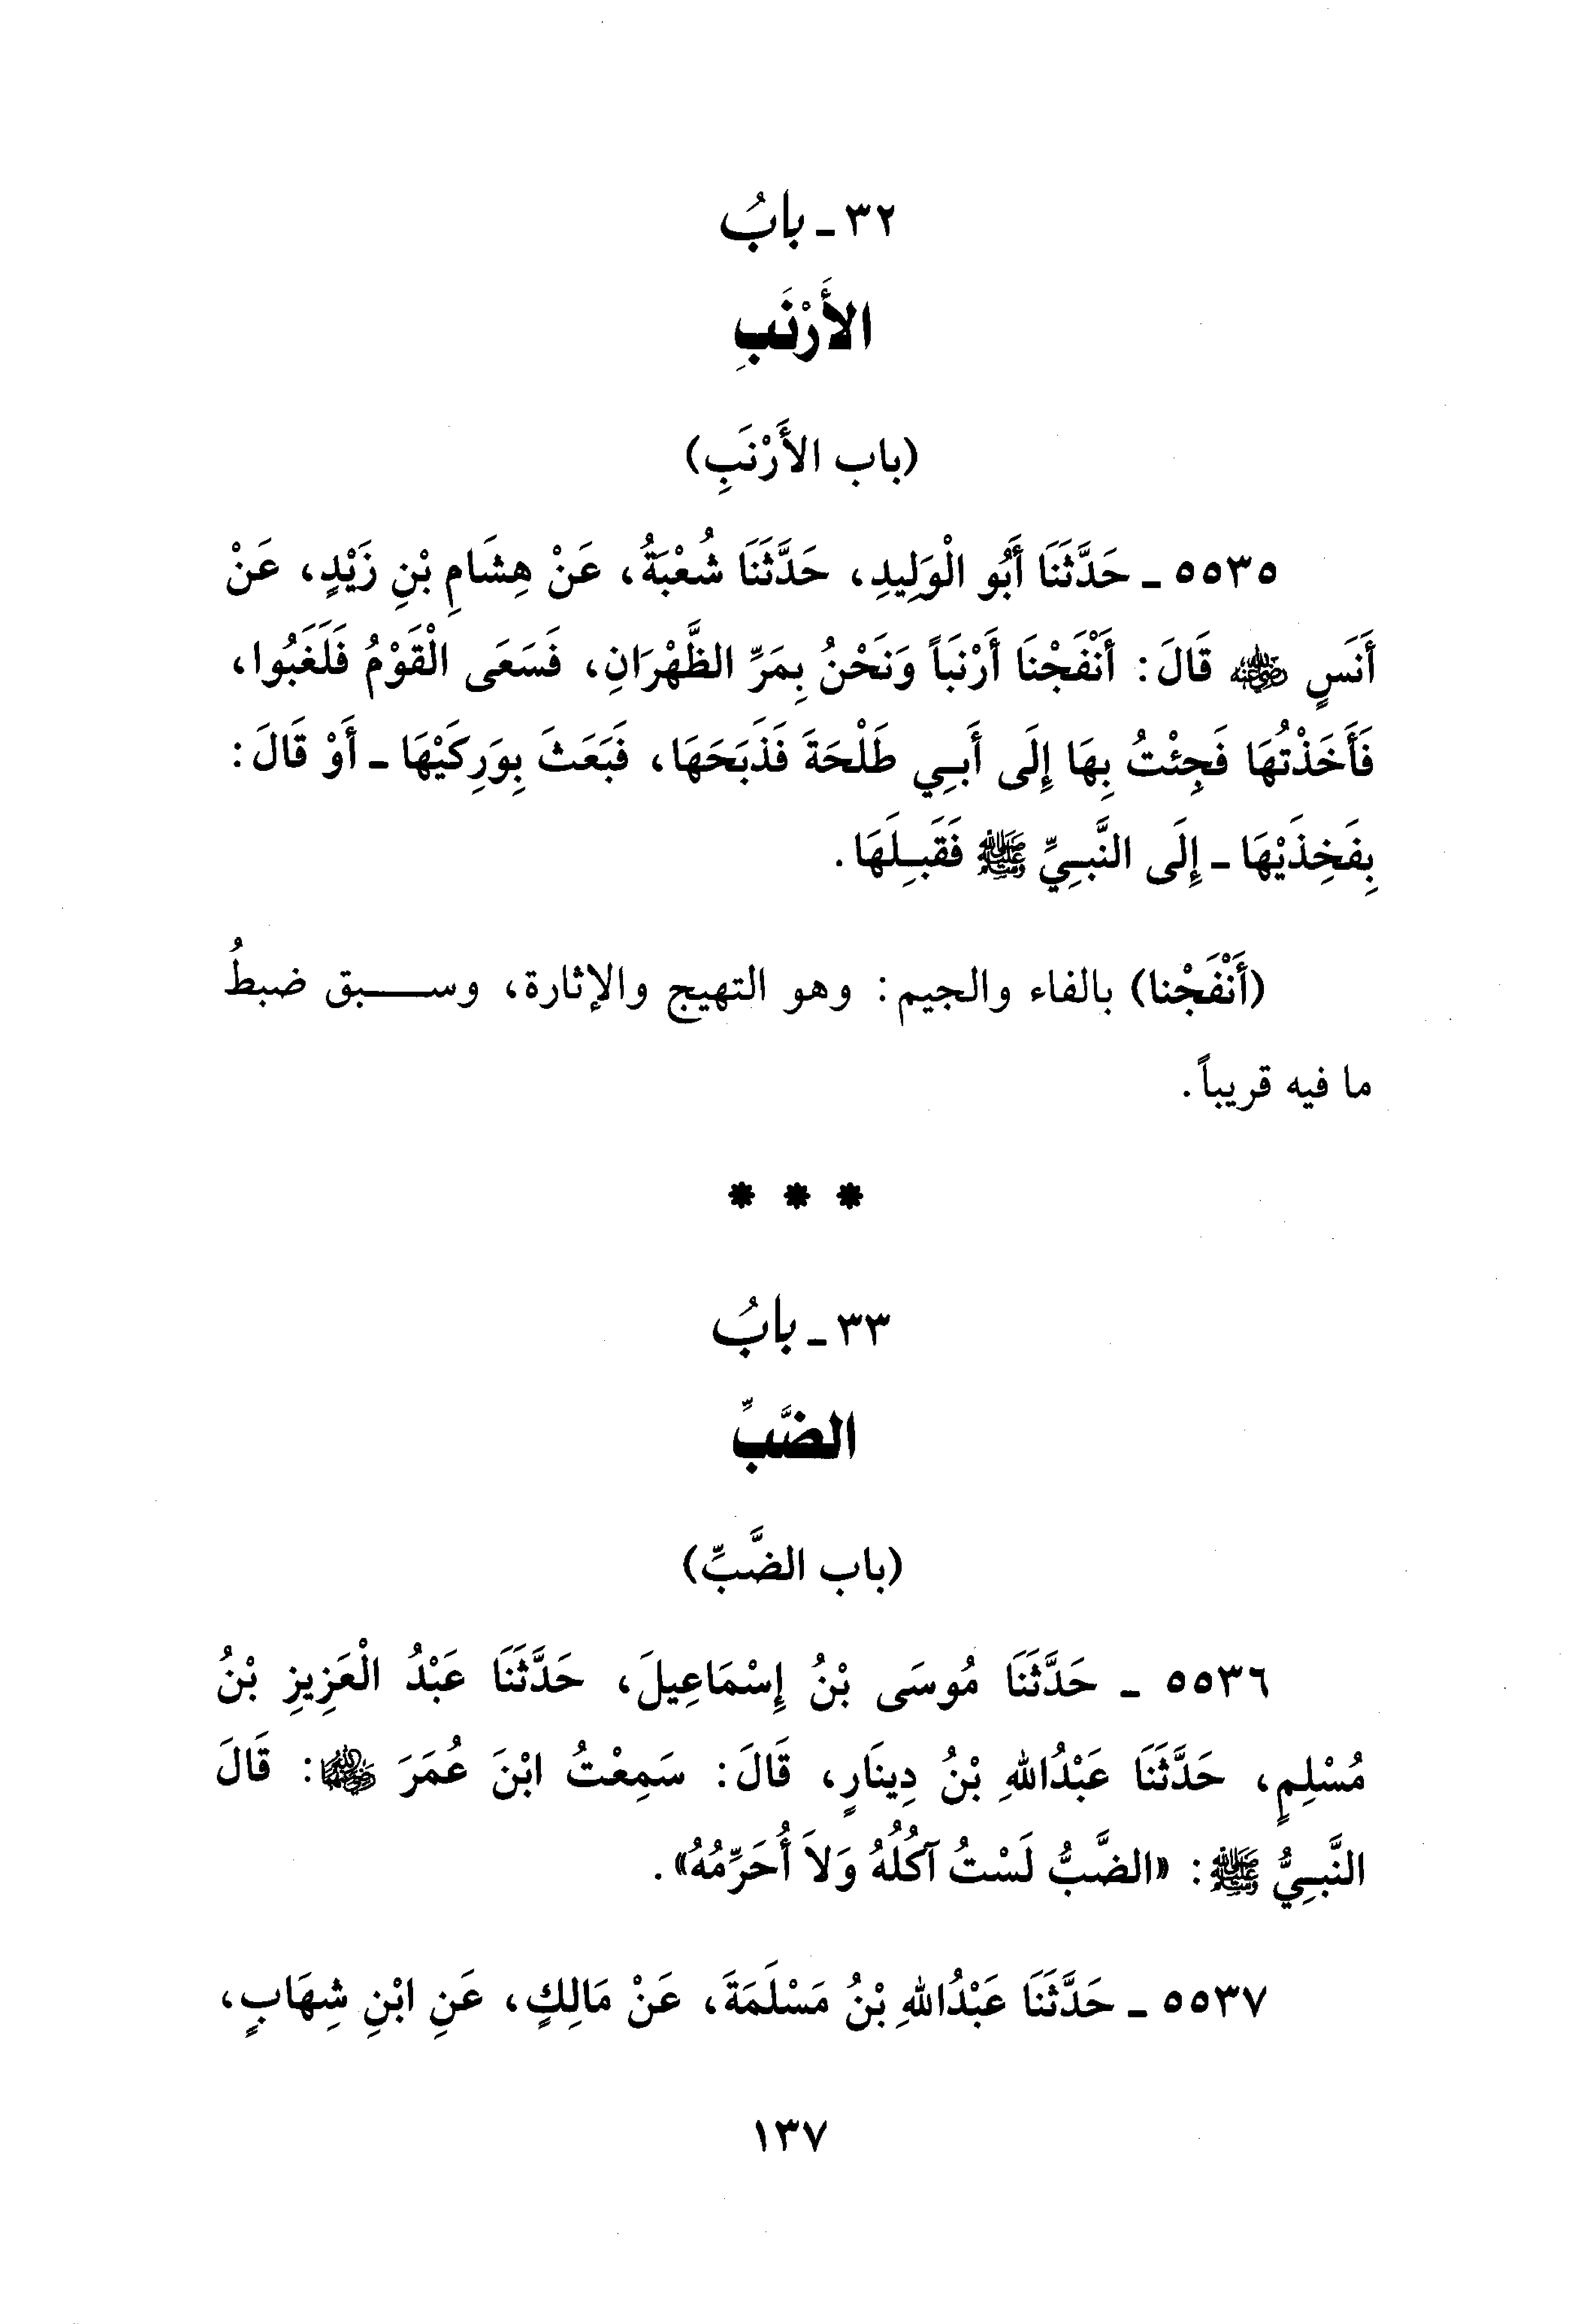 ٣٢ ـ بابُ
الأَرْنَبِ
(باب الأَرْنَبِ)
٥٥٣٥ ـ حَدَّثَنَا أَبُو الْوَلِيدِ، حَدَّثَنَا شُعْبَةُ، عَنْ هِشَامِ بْنِ زَيْدٍ، عَنْ
أَنَسٍ ﵁ قَالَ: أَنْفَجْنَا أَرْنَباً وَنَحْنُ بِمَرِّ الظَّهْرَانِ، فَسَعَى الْقَوْمُ فَلَغَبُوا،
فَأَخَذْتُهَا فَجِئْتُ بِهَا إِلَى أَبِي طَلْحَةَ فَذَبَحَهَا، فَبَعَثَ بِوَرِكَيْهَا ـ أَوْ قَالَ:
بِفَخِذَيْهَا ـ إِلَى النَّبِيِّ ﷺ فَقَبِلَهَا.
(أَنْفَجْنا) بالفاء والجيم: وهو التهيج والإثارة، وسبق ضبطُ
ما فيه قريباً.
* * *
٣٣ ـ بابُ
الضَّبِّ
(باب الضَّبِّ)
٥٥٣٦ ـ حَدَّثَنَا مُوسَى بْنُ إِسْمَاعِيلَ، حَدَّثَنَا عَبْدُ الْعَزِيزِ بْنُ
مُسْلِمٍ، حَدَّثَنَا عَبْدُاللهِ بْنُ دِينَارٍ، قَالَ: سَمِعْتُ ابْنَ عُمَرَ ﵄: قَالَ
النَّبِيُّ ﷺ: «الضَّبُّ لَسْتُ آكُلُهُ وَلاَ أُحَرِّمُهُ».
٥٥٣٧ ـ حَدَّثَنَا عَبْدُاللهِ بْنُ مَسْلَمَةَ، عَنْ مَالِكٍ، عَنِ ابْنِ شِهَابٍ،
١٣٧